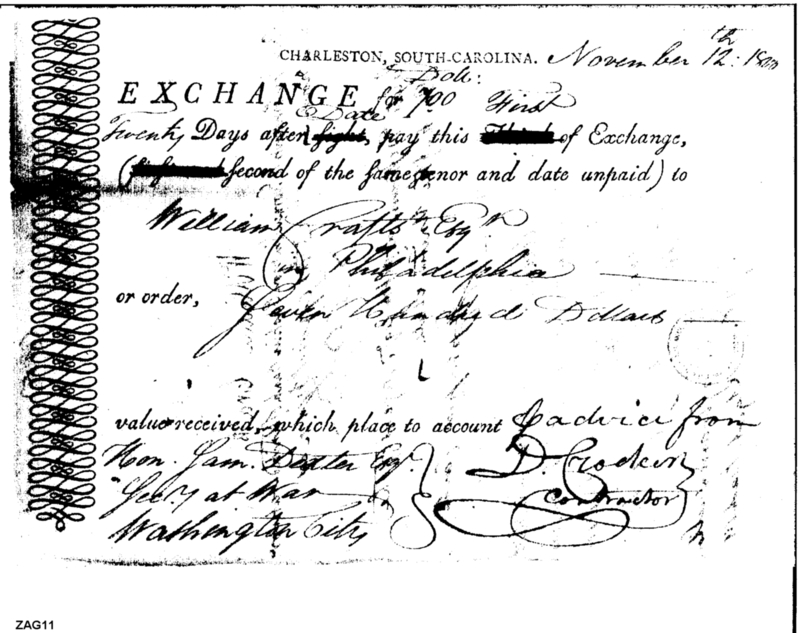 CHARLESTON, SOUTH-CAROLINA. November 12th: 1800
Dolls:
EXCHANGE for 700 First
Date
Twenty Days after sight, pay this Third of Exchange,
(second of the same tenor and date unpaid) to
William Crafts Esqr
in Philadelphia
or order, Seven Hundred Dollars
value received, which place to account advice from
Hon. Sam. Dexter Esqr. D. Crocker
Secy at War Contractor
Washington City
ZAG11